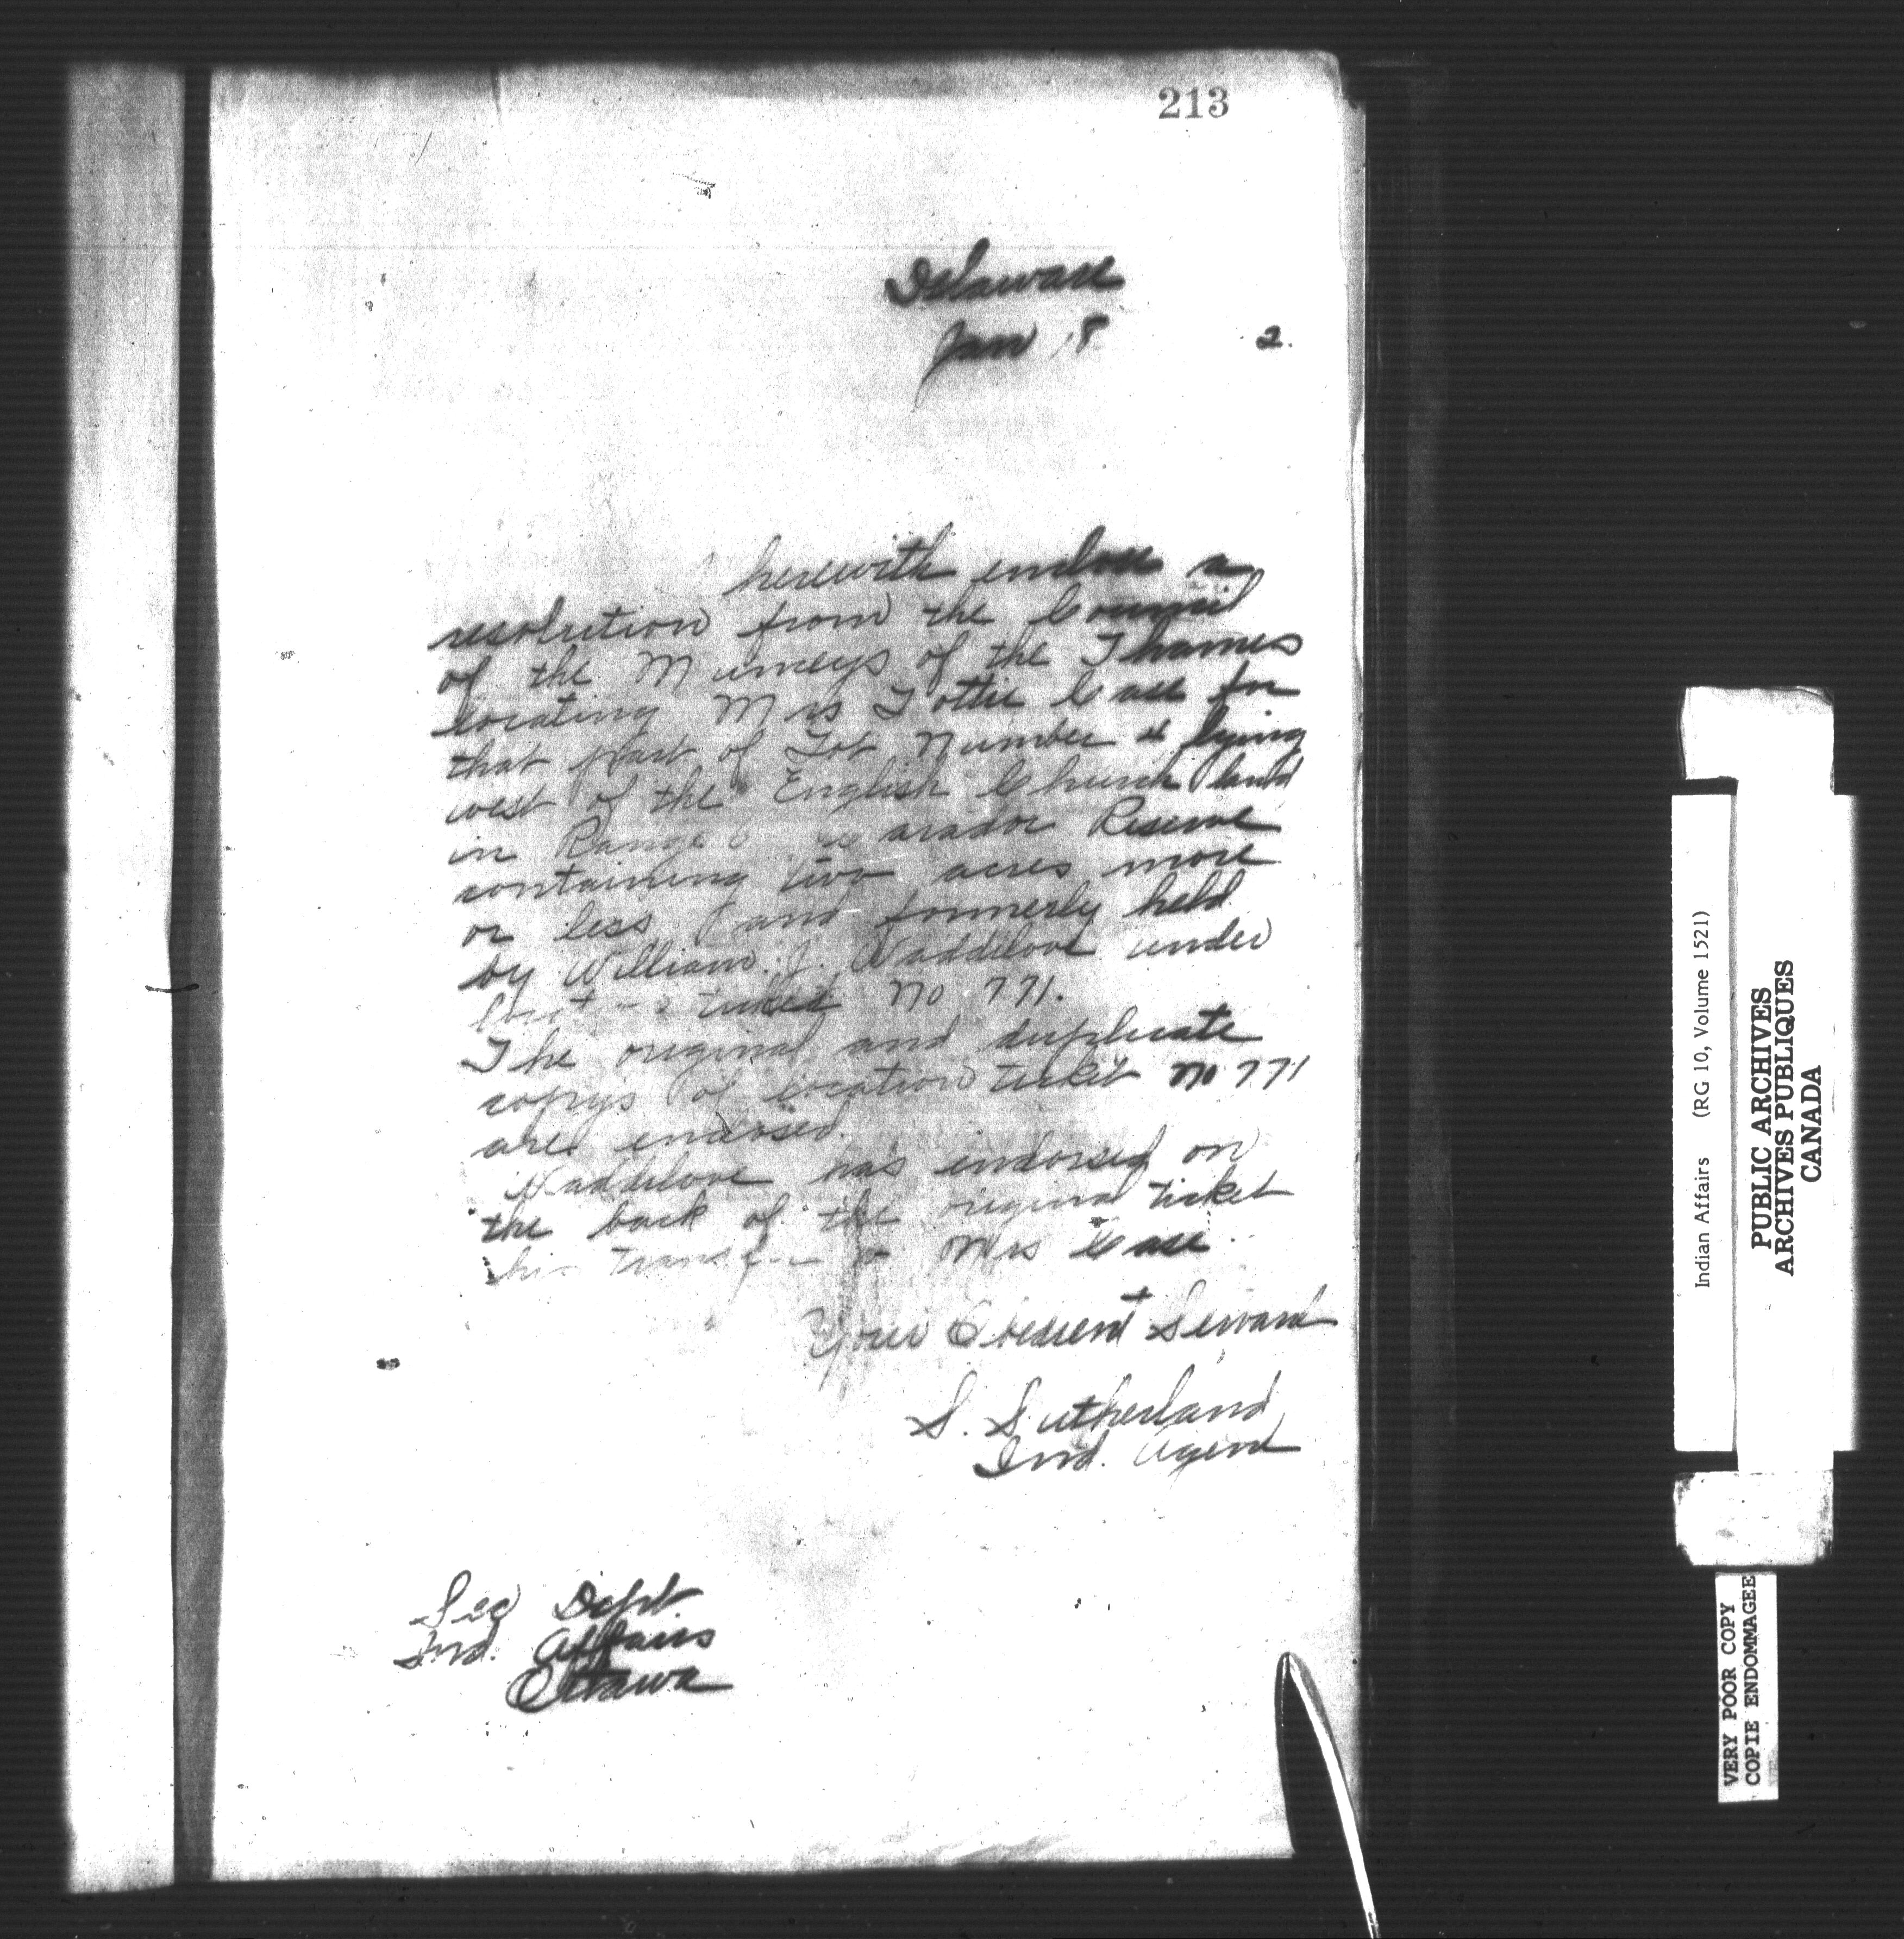 213
Delaware
Jan 8 2.
herewith enclose a
resolution from the Council
of the Munceys of the Thames
locating Mrs Lottie Case for
that part of Lot Number lying
west of the English Church land
in Range Caradoc Reserve
containing two acres more
or less and formerly held
by William J. Waddilove under
ticket No 771.
The original and duplicate
copys of location ticket No 771
are enclosed
Waddilove has endorsed on
the back of the original ticket
his transfer to Mrs Case.
Your Obedient Servant
S. Sutherland
Ind. Agent
Sec Dept
Ind. Affairs
Ottawa
Indian Affairs (RG 10, Volume 1521)
PUBLIC ARCHIVES
ARCHIVES PUBLIQUES
CANADA
VERY POOR COPY
COPIE ENDOMMAGEE